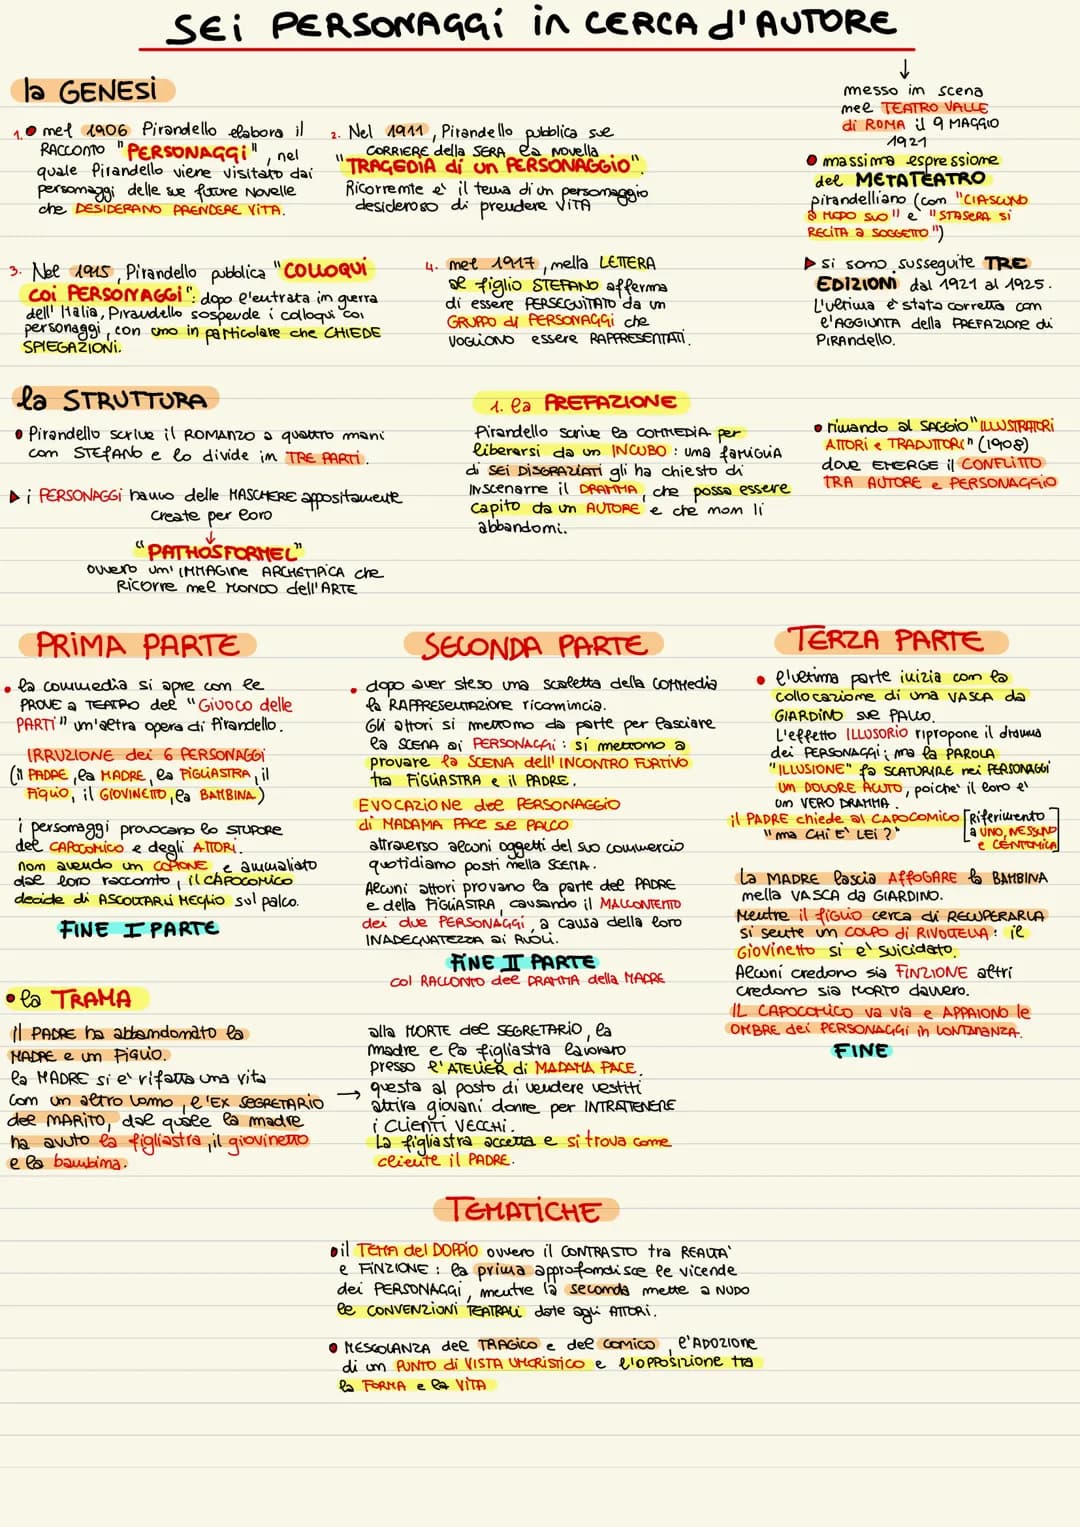 SEI PERSONAGGI in CERCA d'AUTORE
↓
messo in scena
nel TEATRO VALLE
di ROMA il 9 MAGGIO
1921
• massima espressione
del METATEATRO
pirandelliano (con "CIASCUNO
a MODO SUO" e "STASERA SI
RECITA a SOGGETTO")
▶ si sono susseguite TRE
EDIZIONI dal 1921 al 1925.
L'ultima è stata corretta con
l'AGGIUNTA della PREFAZIONE di
PIRANDELLO.
la GENESI
1. • nel 1906 Pirandello elabora il
RACCONTO "PERSONAGGI", nel
quale Pirandello viene visitato dai
personaggi delle sue future NOVELLE
che DESIDERANO PRENDERE VITA.
2. Nel 1911, Pirandello pubblica sul
CORRIERE della SERA la novella
"TRAGEDIA di un PERSONAGGIO".
Ricorrente e' il tema di un personaggio
desideroso di prendere VITA
3. Nel 1915, Pirandello pubblica "COLLOQUI
coi PERSONAGGI": dopo l'entrata in guerra
dell'Italia, Pirandello sospende i colloqui coi
personaggi, con uno in particolare che CHIEDE
SPIEGAZIONI.
4. nel 1917, nella LETTERA
al figlio STEFANO afferma
di essere PERSEGUITATO da un
GRUPPO di PERSONAGGI che
VOGLIONO essere RAPPRESENTATI.
la STRUTTURA
• Pirandello scrive il ROMANZO a quattro mani
con STEFANO e lo divide in TRE PARTI.
▶ i PERSONAGGI hanno delle MASCHERE appositamente
create per loro
↓
"PATHOSFORMEL"
ovvero un'IMMAGINE ARCHETIPICA che
RICORRE nel MONDO dell'ARTE
1. la PREFAZIONE
Pirandello scrive la COMMEDIA per
liberarsi da un INCUBO: una famiglia
di SEI DISGRAZIATI gli ha chiesto di
inscenarne il DRAMMA, che possa essere
capito da un AUTORE e che non li
abbandoni.
• rimando al SAGGIO "ILLUSTRATORI
ATTORI e TRADUTTORI" (1908)
dove EMERGE il CONFLITTO
TRA AUTORE e PERSONAGGIO
PRIMA PARTE
• la commedia si apre con le
PROVE a TEATRO del "GIUOCO delle
PARTI" un'altra opera di Pirandello.
IRRUZIONE dei 6 PERSONAGGI
(il PADRE, la MADRE, la FIGLIASTRA, il
FIGLIO, il GIOVINETTO, la BAMBINA)
i personaggi provocano lo STUPORE
del CAPOCOMICO e degli ATTORI.
non avendo un COPIONE e ammaliato
dal loro racconto, il CAPOCOMICO
decide di ASCOLTARLI MEGLIO sul palco.
FINE I PARTE
SECONDA PARTE
• dopo aver steso una scaletta della COMMEDIA
la RAPPRESENTAZIONE ricomincia.
Gli attori si mettono da parte per lasciare
la SCENA ai PERSONAGGI: si mettono a
provare la SCENA dell'INCONTRO FURTIVO
tra FIGLIASTRA e il PADRE.
EVOCAZIONE del PERSONAGGIO
di MADAMA PACE sul PALCO
attraverso alcuni oggetti del suo commercio
quotidiano posti nella SCENA.
Alcuni attori provano la parte del PADRE
e della FIGLIASTRA, causando il MALCONTENTO
dei due PERSONAGGI, a causa della loro
INADEGUATEZZA ai RUOLI.
FINE II PARTE
col RACCONTO del DRAMMA della MADRE
TERZA PARTE
• l'ultima parte inizia con la
collocazione di una VASCA da
GIARDINO sul PALCO.
L'effetto ILLUSORIO ripropone il dramma
dei PERSONAGGI; ma la PAROLA
"ILLUSIONE" fa SCATURIRE nei PERSONAGGI
UN DOLORE ACUTO, poiche' il loro e'
un VERO DRAMMA.
il PADRE chiede al CAPOCOMICO
"ma CHI E' LEI?"
[Riferimento
a UNO, NESSUNO
e CENTOMILA]
La MADRE lascia AFFOGARE la BAMBINA
nella VASCA da GIARDINO.
Mentre il figlio cerca di RECUPERARLA
si sente un COLPO di RIVOLTELLA: il
Giovinetto si e' suicidato.
Alcuni credono sia FINZIONE altri
credono sia MORTO davvero.
IL CAPOCOMICO va via e APPAIONO le
OMBRE dei PERSONAGGI in LONTANANZA.
FINE
• la TRAMA
Il PADRE ha abbandonato la
MADRE e un FIGLIO.
la MADRE si e' rifatta una vita
con un altro uomo, l'EX SEGRETARIO
del MARITO, dal quale la madre
ha avuto la figliastra, il giovinetto
e la bambina.
→
alla MORTE del SEGRETARIO, la
madre e la figliastra lavorano
presso l'ATELIER di MADAMA PACE.
questa al posto di vendere vestiti
attira giovani donne per INTRATTENERE
i CLIENTI VECCHI.
La figliastra accetta e si trova come
cliente il PADRE.
TEMATICHE
• il TEMA del DOPPIO ovvero il CONTRASTO tra REALTA'
e FINZIONE: la prima approfondisce le vicende
dei PERSONAGGI, mentre la seconda mette a NUDO
le CONVENZIONI TEATRALI date agli ATTORI.
• MESCOLANZA del TRAGICO e del COMICO, l'ADOZIONE
di un PUNTO di VISTA UMORISTICO e l'OPPOSIZIONE tra
la FORMA e la VITA